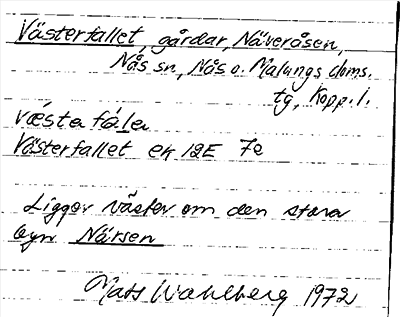 Västerfallet, gårdar, Näveråsen,
Nås sn, Nås o. Malungs doms.
tg, Kopp. l.
væ̀sta fála
Västerfallet ek 12E 7e
Ligger väster om den stora
byn Närsen
Mats Wahlberg 1972